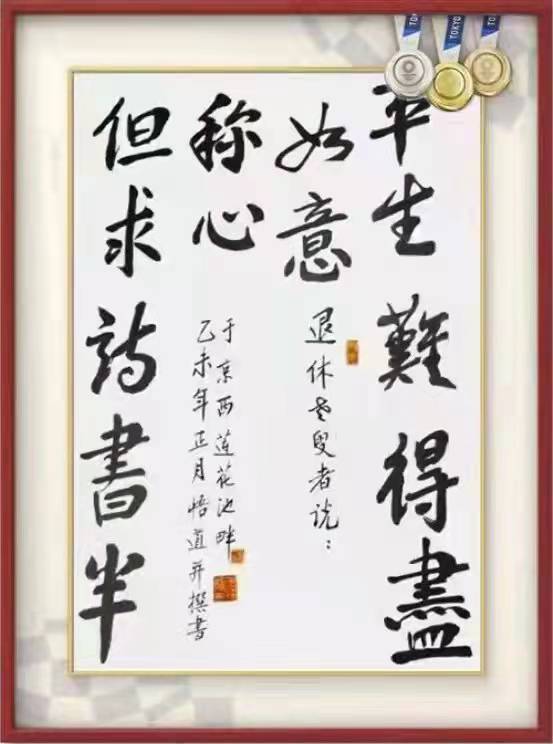 平生難得盡
如意
但求詩書半
称心
退休老叟者说：
于京西蓮花池畔
乙未年正月悟道并撰書
TOKYO